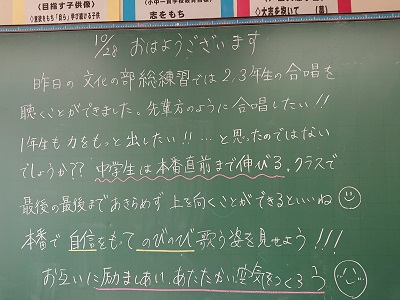 〈目指す子供像〉
志をもち
10/28 おはようございます
昨日の文化の部総練習では2,3年生の合唱を
聴くことができました。先輩方のように合唱したい!!
1年生も力をもっと出したい!!…と思ったのではない
でしょうか?? 中学生は本番直前まで伸びる。クラスで
最後の最後まであきらめず上を向くことができるといいね
本番で自信をもってのびのび歌う姿を見せよう!!!
お互いに励ましあい、あたたかい空気をつくろう